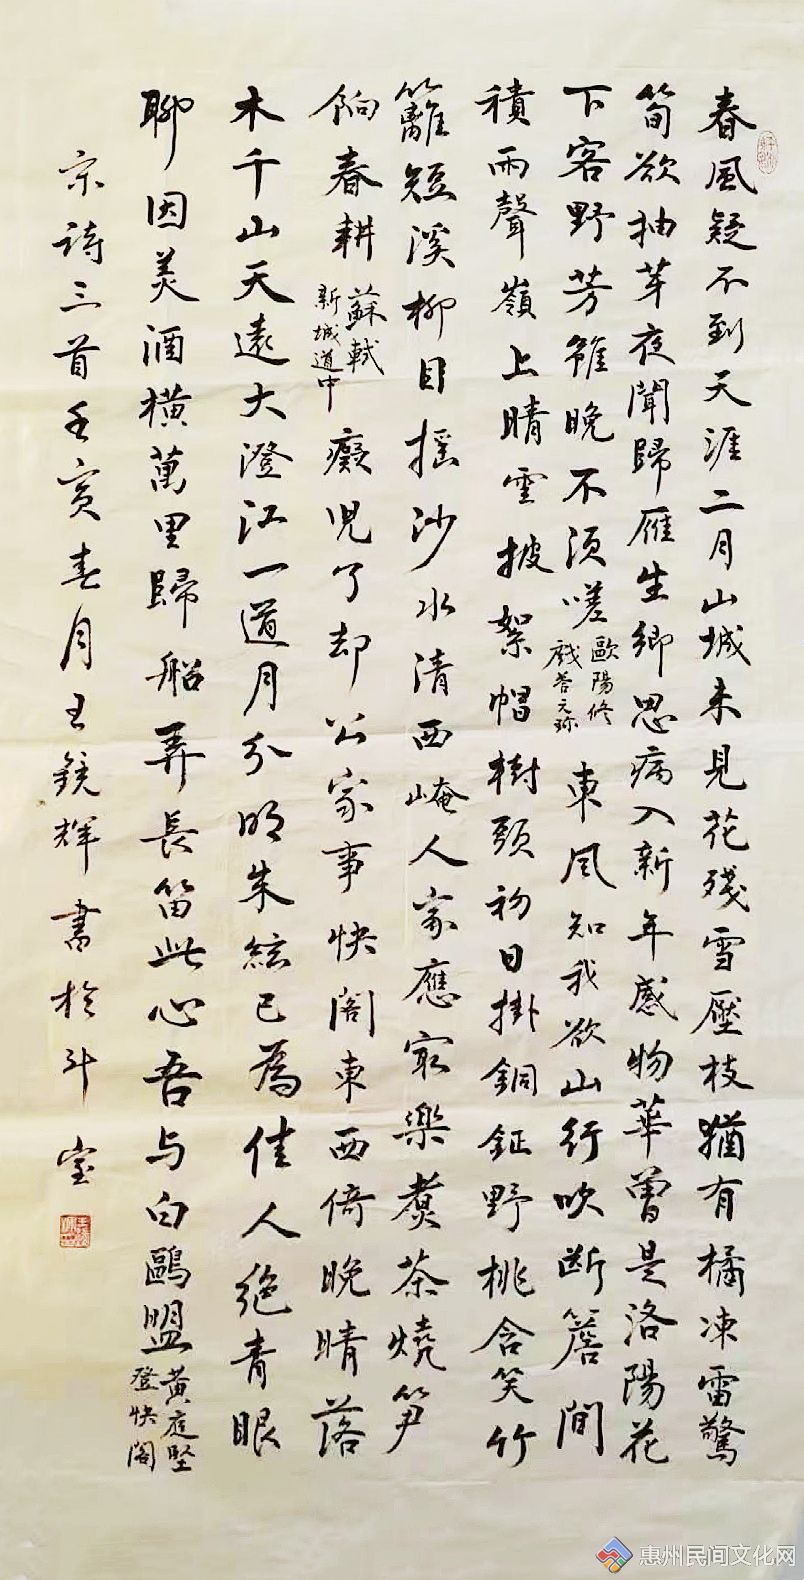 春風疑不到天涯二月山城未見花殘雪壓枝猶有橘凍雷驚
筍欲抽芽夜聞歸雁生鄉思病入新年感物華曾是洛陽花
下客野芳雖晚不須嗟歐陽修戲答元珍東風知我欲山行吹斷簷間
積雨聲嶺上晴雲披絮帽樹頭初日掛銅鉦野桃含笑竹
籬短溪柳自搖沙水清西崦人家應最樂煮茶燒笋
餉春耕蘇軾新城道中癡兒了却公家事快閣東西倚晚晴落
木千山天遠大澄江一道月分明朱絃已為佳人絕青眼
聊因美酒橫萬里歸船弄長笛此心吾与白鷗盟黃庭堅登快閣
宋詩三首壬寅春月王鏡輝書於斗室
惠州民间文化网